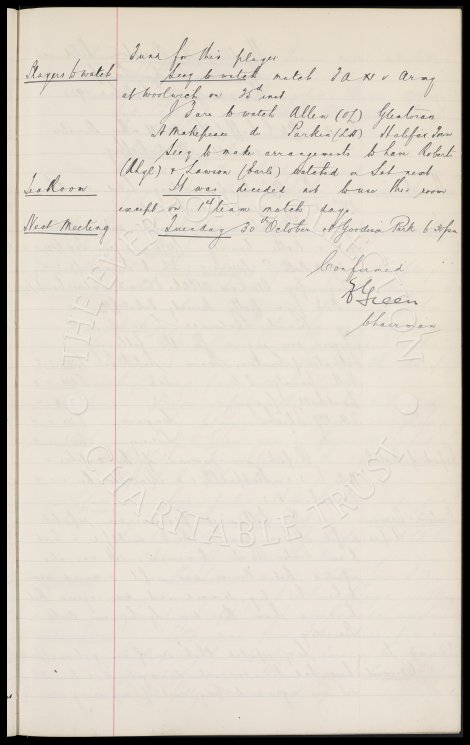 June for this player
Players to watch Secy to watch match F A XI v Army
at Woolwich on 25th inst
J Fare to watch Allen (OL) Glentoran
H Makepeace do Parkin (LH) Halifax Town
Secy to make arrangements to have Roberts
(Rhyl) & Lawson (Earls) watched on Sat next
Tea Room It was decided not to use this room
except on 1st team match days
Next Meeting Tuesday 30th October at Goodison Park 6.30pm
Confirmed
E Green
Chairman
© THE EVERTON COLLECTION
CHARITABLE TRUST